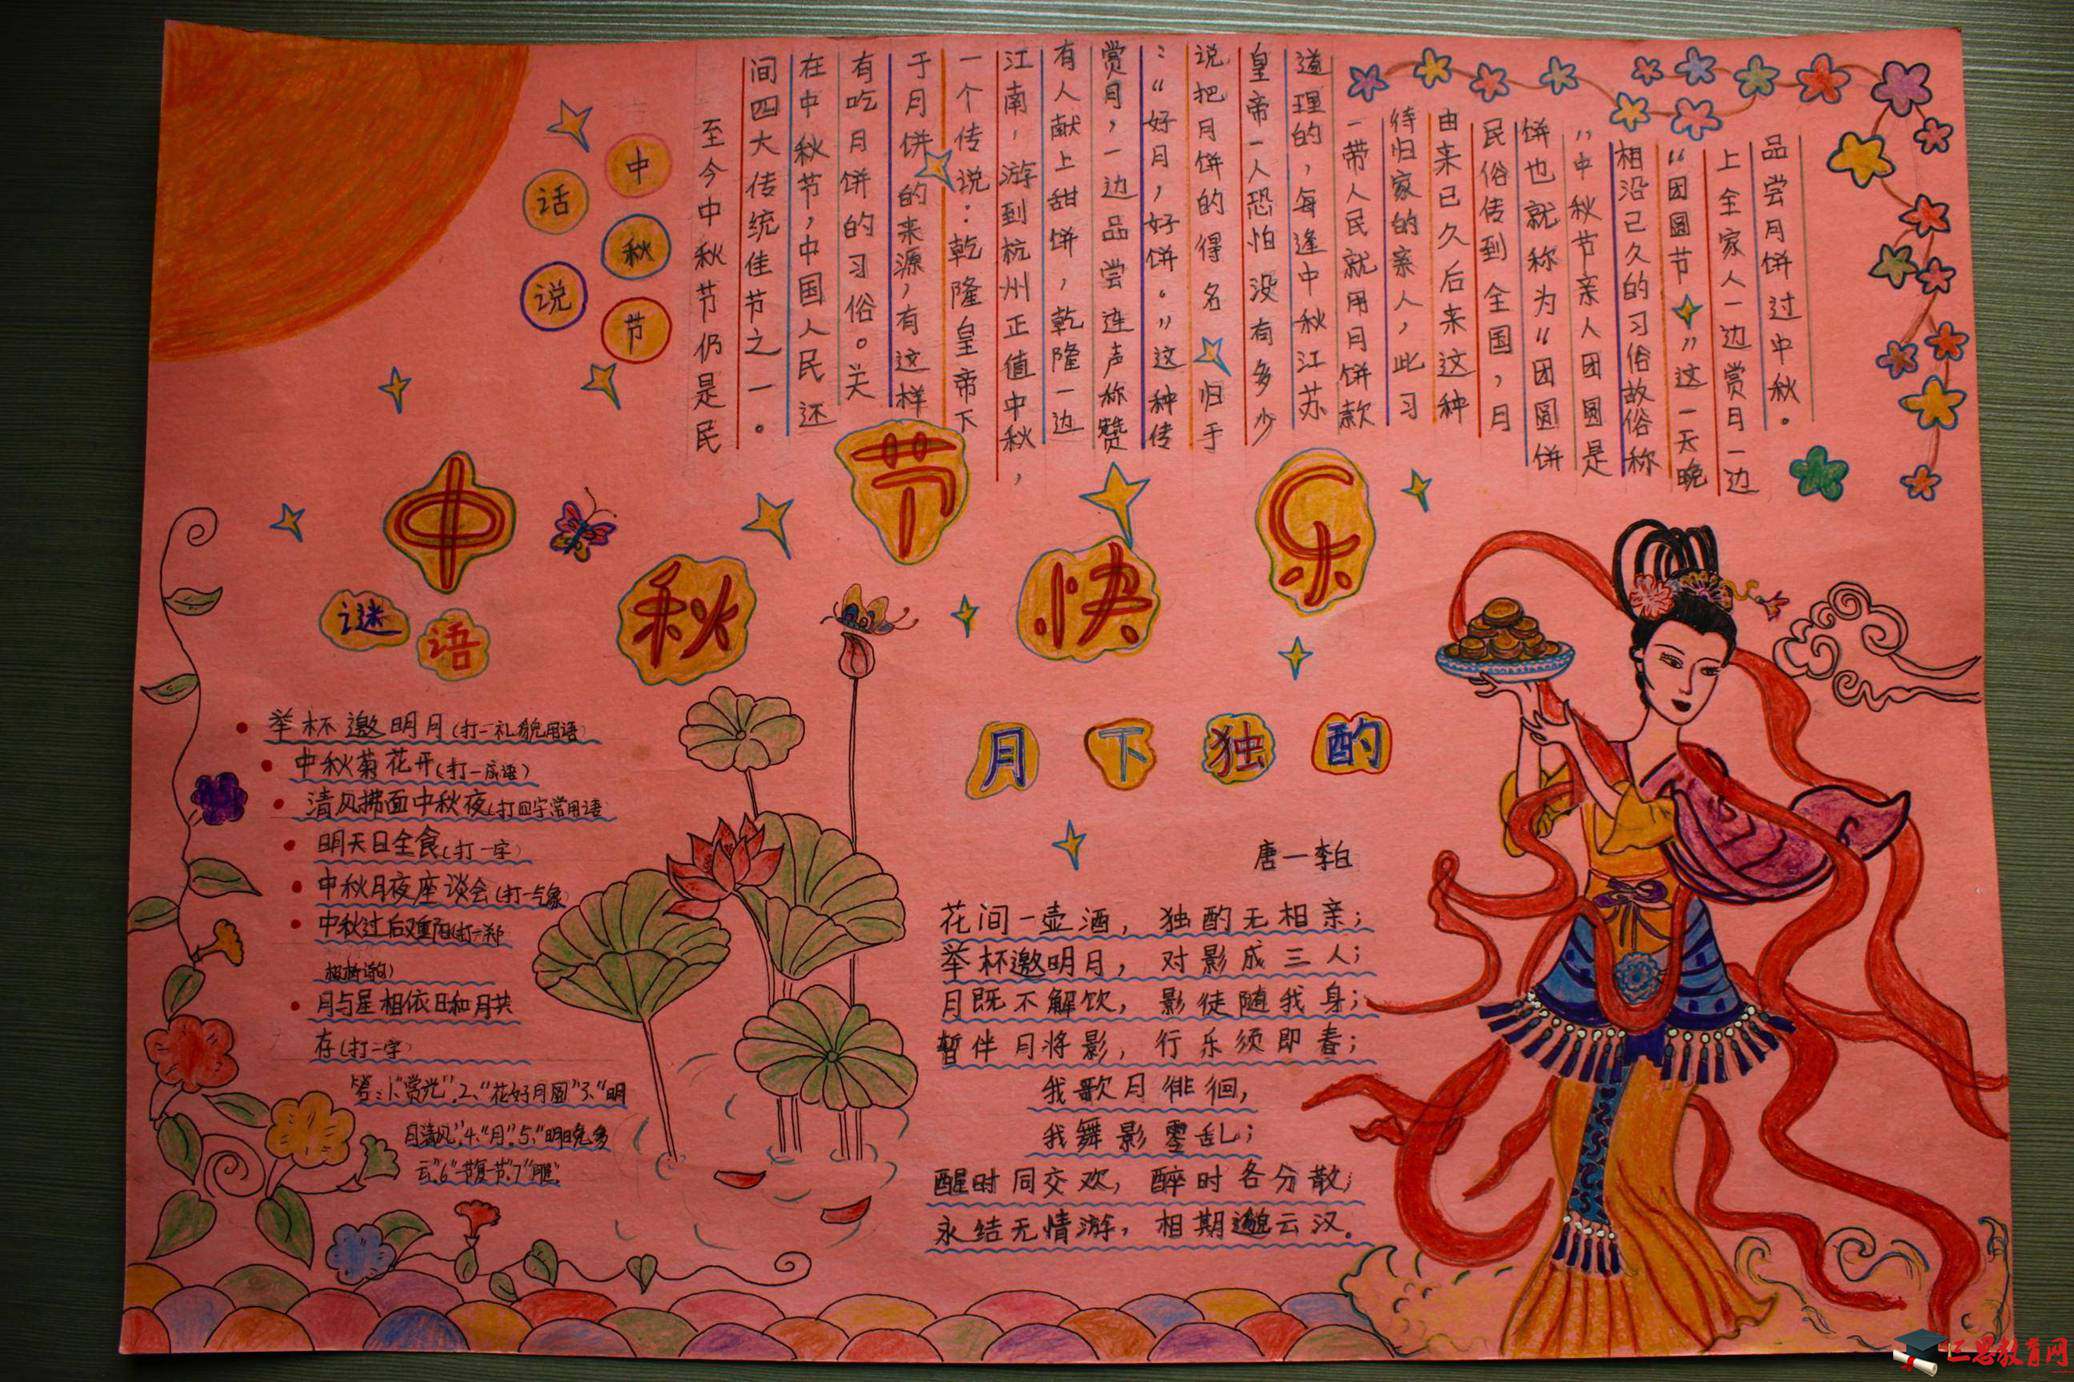 话说
中秋节
至今中秋节仍是民
间四大传统佳节之一。
在中秋节,中国人民还
有吃月饼的习俗。关
于月饼的来源,有这样
一个传说:乾隆皇帝下
江南,游到杭州正值中秋,
有人献上甜饼,乾隆一边
赏月,一边品尝连声称赞
:“好月,好饼。”这种传
说把月饼的得名归于
皇帝一人恐怕没有多少
道理的,每逢中秋江苏
一带人民就用月饼款
待归家的亲人,此习
由来已久后来这种
民俗传到全国,月
饼也就称为“团圆饼
”中秋节亲人团圆是
相沿已久的习俗故俗称
“团圆节”这一天晚
上全家人一边赏月一边
品尝月饼过中秋。
中秋节快乐
谜语
举杯邀明月(打一礼貌用语)
中秋菊花开(打一成语)
清风拂面中秋夜(打四字常用语)
明天日全食(打一字)
中秋月夜座谈会(打一气象)
中秋过后又重阳(打一郑
板桥诗句)
月与星相依日和月共
存(打二字)
答:1、“赏光”、2、“花好月圆”3、“明
月清风”、4、“月”、5、“明日晚多
云”6“一节复一节”7“腥”
月下独酌
唐一李白
花间一壶酒,独酌无相亲;
举杯邀明月,对影成三人;
月既不解饮,影徒随我身;
暂伴月将影,行乐须即春;
我歌月徘徊,
我舞影零乱;
醒时同交欢,醉时各分散;
永结无情游,相期邈云汉。
仁思教育网